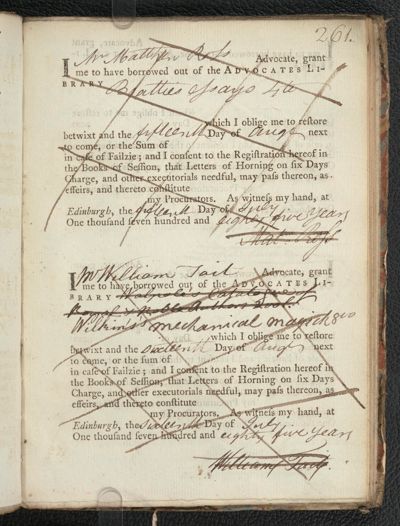 261.
I Mr Matthew Ross Advocate, grant
me to have borrowed out of the ADVOCATES LI-
BRARY Beatties Essays 4to
which I oblige me to restore
betwixt and the fifteenth Day of Augt next
to come, or the Sum of
in case of Failzie; and I consent to the Registration hereof in
the Books of Session, that Letters of Horning on six Days
Charge, and other executorials needful, may pass thereon, as
effeirs, and thereto constitute
my Procurators. As witness my hand, at
Edinburgh, the fifteenth Day of July
One thousand seven hundred and eighty five years
Mat. Ross
I Mr William Tait Advocate, grant
me to have borrowed out of the ADVOCATES LI-
BRARY Walpole's Catalogue of
Royal & Noble Authors 2 vol.
Wilkins's mechanical magick 8vo
which I oblige me to restore
betwixt and the sixteenth Day of Augt next
to come, or the sum of
in case of Failzie; and I consent to the Registration hereof in
the Books of Session, that Letters of Horning on six Days
Charge, and other executorials needful, may pass thereon, as
effeirs, and thereto constitute
my Procurators. As witness my hand, at
Edinburgh, the sixteenth Day of July
One thousand seven hundred and eighty five years
William Tait